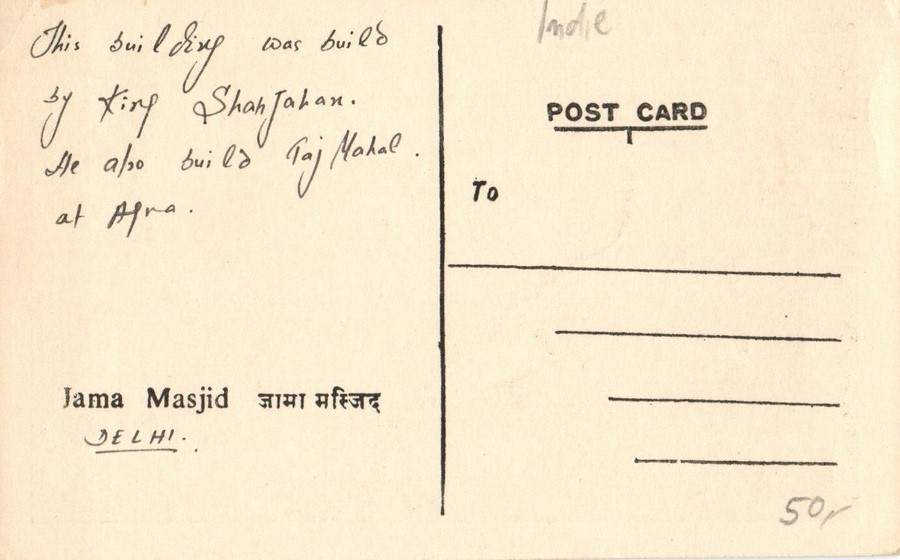 This building was build
by King ShahJahan.
He also build Taj Mahal.
at Agra.
Jama Masjid जामा मस्जिद
DELHI.
Indie
POST CARD
To
50,-